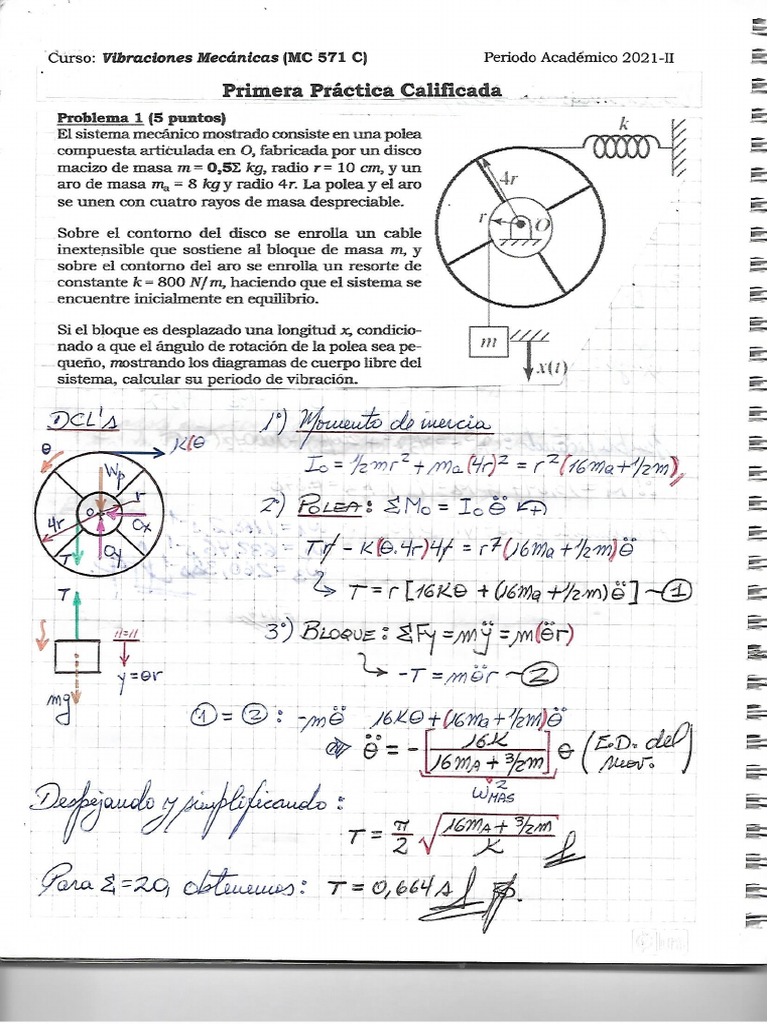 Curso: Vibraciones Mecánicas (MC 571 C) Periodo Académico 2021-II
Primera Práctica Calificada
Problema 1 (5 puntos)
El sistema mecánico mostrado consiste en una polea
compuesta articulada en O, fabricada por un disco
macizo de masa m = 0,5Σ kg, radio r = 10 cm, y un
aro de masa mₐ = 8 kg y radio 4r. La polea y el aro
se unen con cuatro rayos de masa despreciable.
Sobre el contorno del disco se enrolla un cable
inextensible que sostiene al bloque de masa m, y
sobre el contorno del aro se enrolla un resorte de
constante k = 800 N/m, haciendo que el sistema se
encuentre inicialmente en equilibrio.
Si el bloque es desplazado una longitud x, condicio-
nado a que el ángulo de rotación de la polea sea pe-
queño, mostrando los diagramas de cuerpo libre del
sistema, calcular su periodo de vibración.
k
4r
r
O
m
x(t)
DCL'S
θ
Wp
r
4r
O
Ox
Oy
T
T
mg
y=θr
1°) Momento de inercia
Io = 1/2mr² + ma(4r)² = r²(16ma+1/2m)
2°) POLEA: ΣMo = Io θ̈
Tr - K(θ.4r)4r = r²(16ma+1/2m)θ̈
T = r[16Kθ + (16ma+1/2m)θ̈] ~ 1
3°) BLOQUE: ΣFy = mÿ = m(θ̈r)
-T = mθ̈r ~ 2
1 = 2 : -mθ̈ 16Kθ+(16ma+1/2m)θ̈
θ̈ = -[16K / 16mA + 3/2m] θ (E.D. del mov.)
ω²MAS
Despejando y simplificando:
T = π/2 √(16mA + 3/2m / K)
Para Σ=20, obtenemos: T = 0,664 s